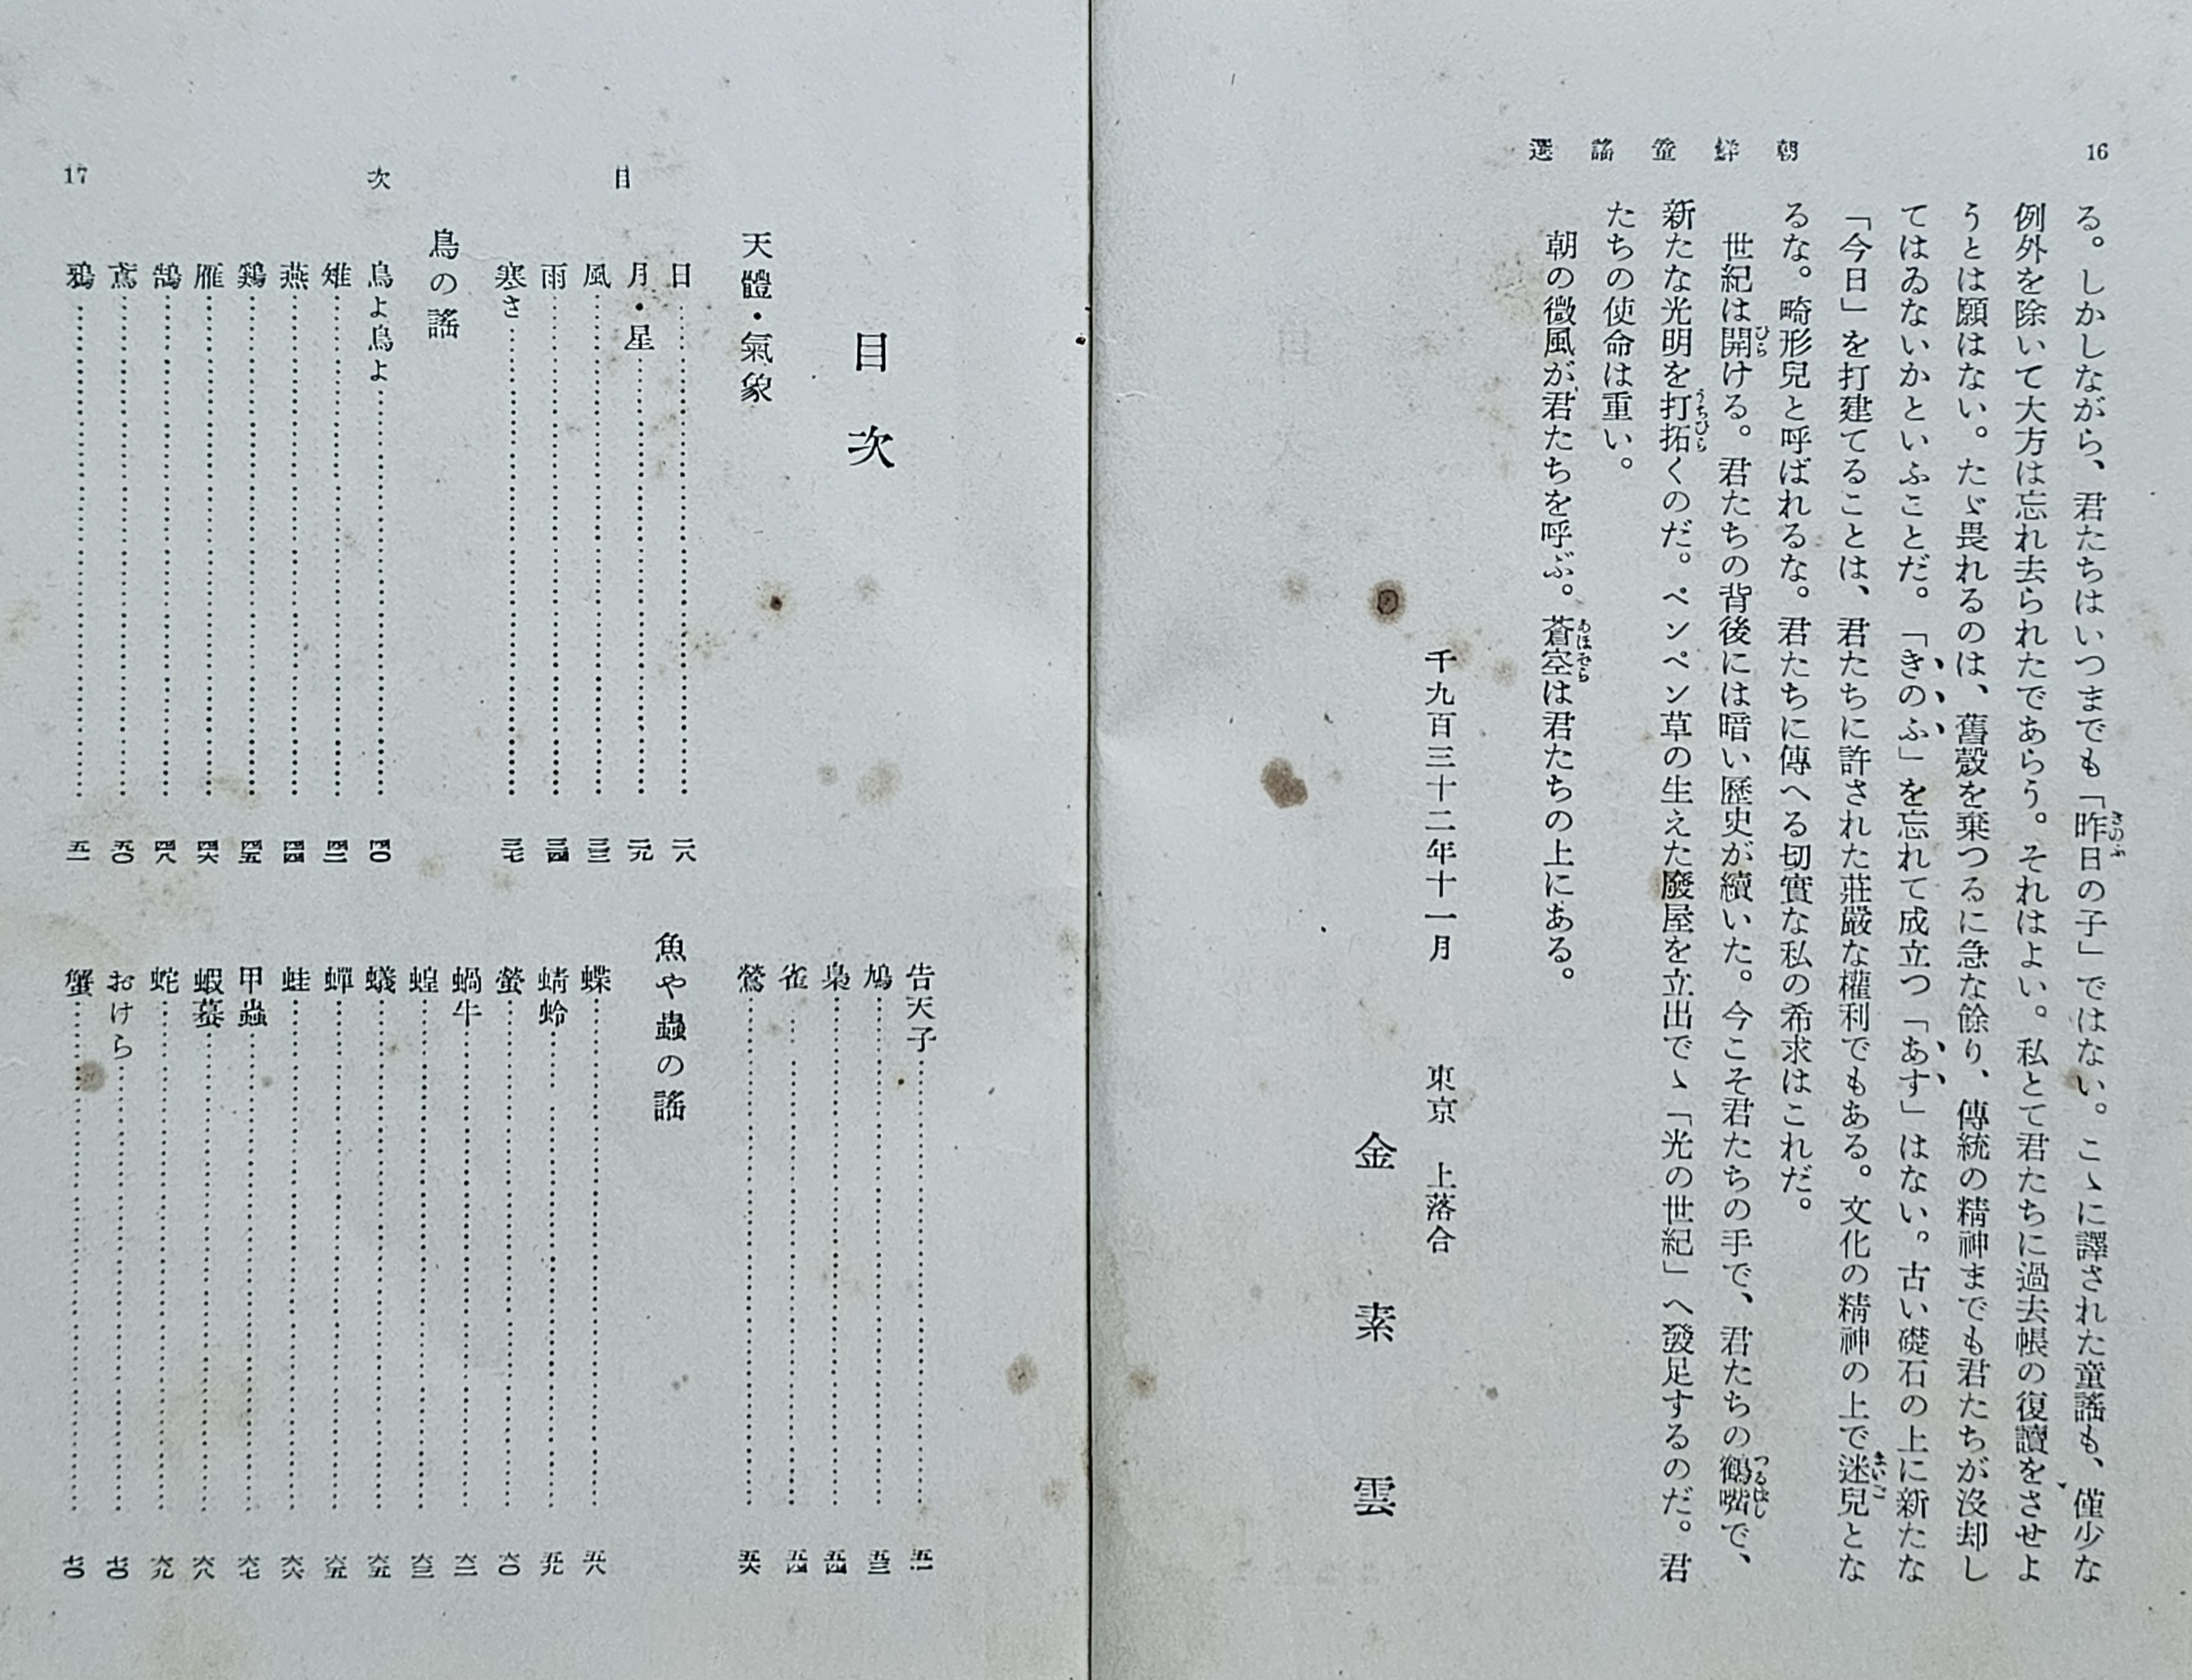 16
朝鮮童謠選
る。しかしながら、君たちはいつまでも「昨日の子」ではない。こゝに譯された童謠も、僅少な
例外を除いて大方は忘れ去られたであらう。それはよい。私とて君たちに過去帳の復讀をさせよ
うとは願はない。たゞ畏れるのは、舊殼を棄つるに急な餘り、傳統の精神までも君たちが沒却し
てはゐないかといふことだ。「きのふ」を忘れて成立つ「あす」はない。古い礎石の上に新たな
「今日」を打建てることは、君たちに許された莊嚴な權利でもある。文化の精神の上で迷兒とな
るな。畸形兒と呼ばれるな。君たちに傳へる切實な私の希求はこれだ。
世紀は開ける。君たちの背後には暗い歷史が續いた。今こそ君たちの手で、君たちの鶴嘴で、
新たな光明を打拓くのだ。ペンペン草の生えた廢屋を立出でゝ「光の世紀」へ發足するのだ。君
たちの使命は重い。
朝の微風が君たちを呼ぶ。蒼空は君たちの上にある。
千九百三十二年十一月 東京 上落合
金素雲
目次
17
目次
天體・氣象
日……二八
月・星……二九
風……三三
雨……三四
寒さ……三七
鳥の謠
鳥よ鳥よ……四〇
雉……四二
燕……四四
鷄……四五
雁……四六
鵠……四八
鳶……五〇
鴉……五一
告天子……五二
鳩……五三
梟……五四
雀……五四
鶯……五六
魚や蟲の謠
蝶……五八
蜻蛉……五九
螢……六〇
蝸牛……六二
蝗……六三
蟻……六五
蟬……六五
蛙……六六
甲蟲……六七
蝦蟇……六八
蛇……六九
おけら……七〇
蟹……七〇